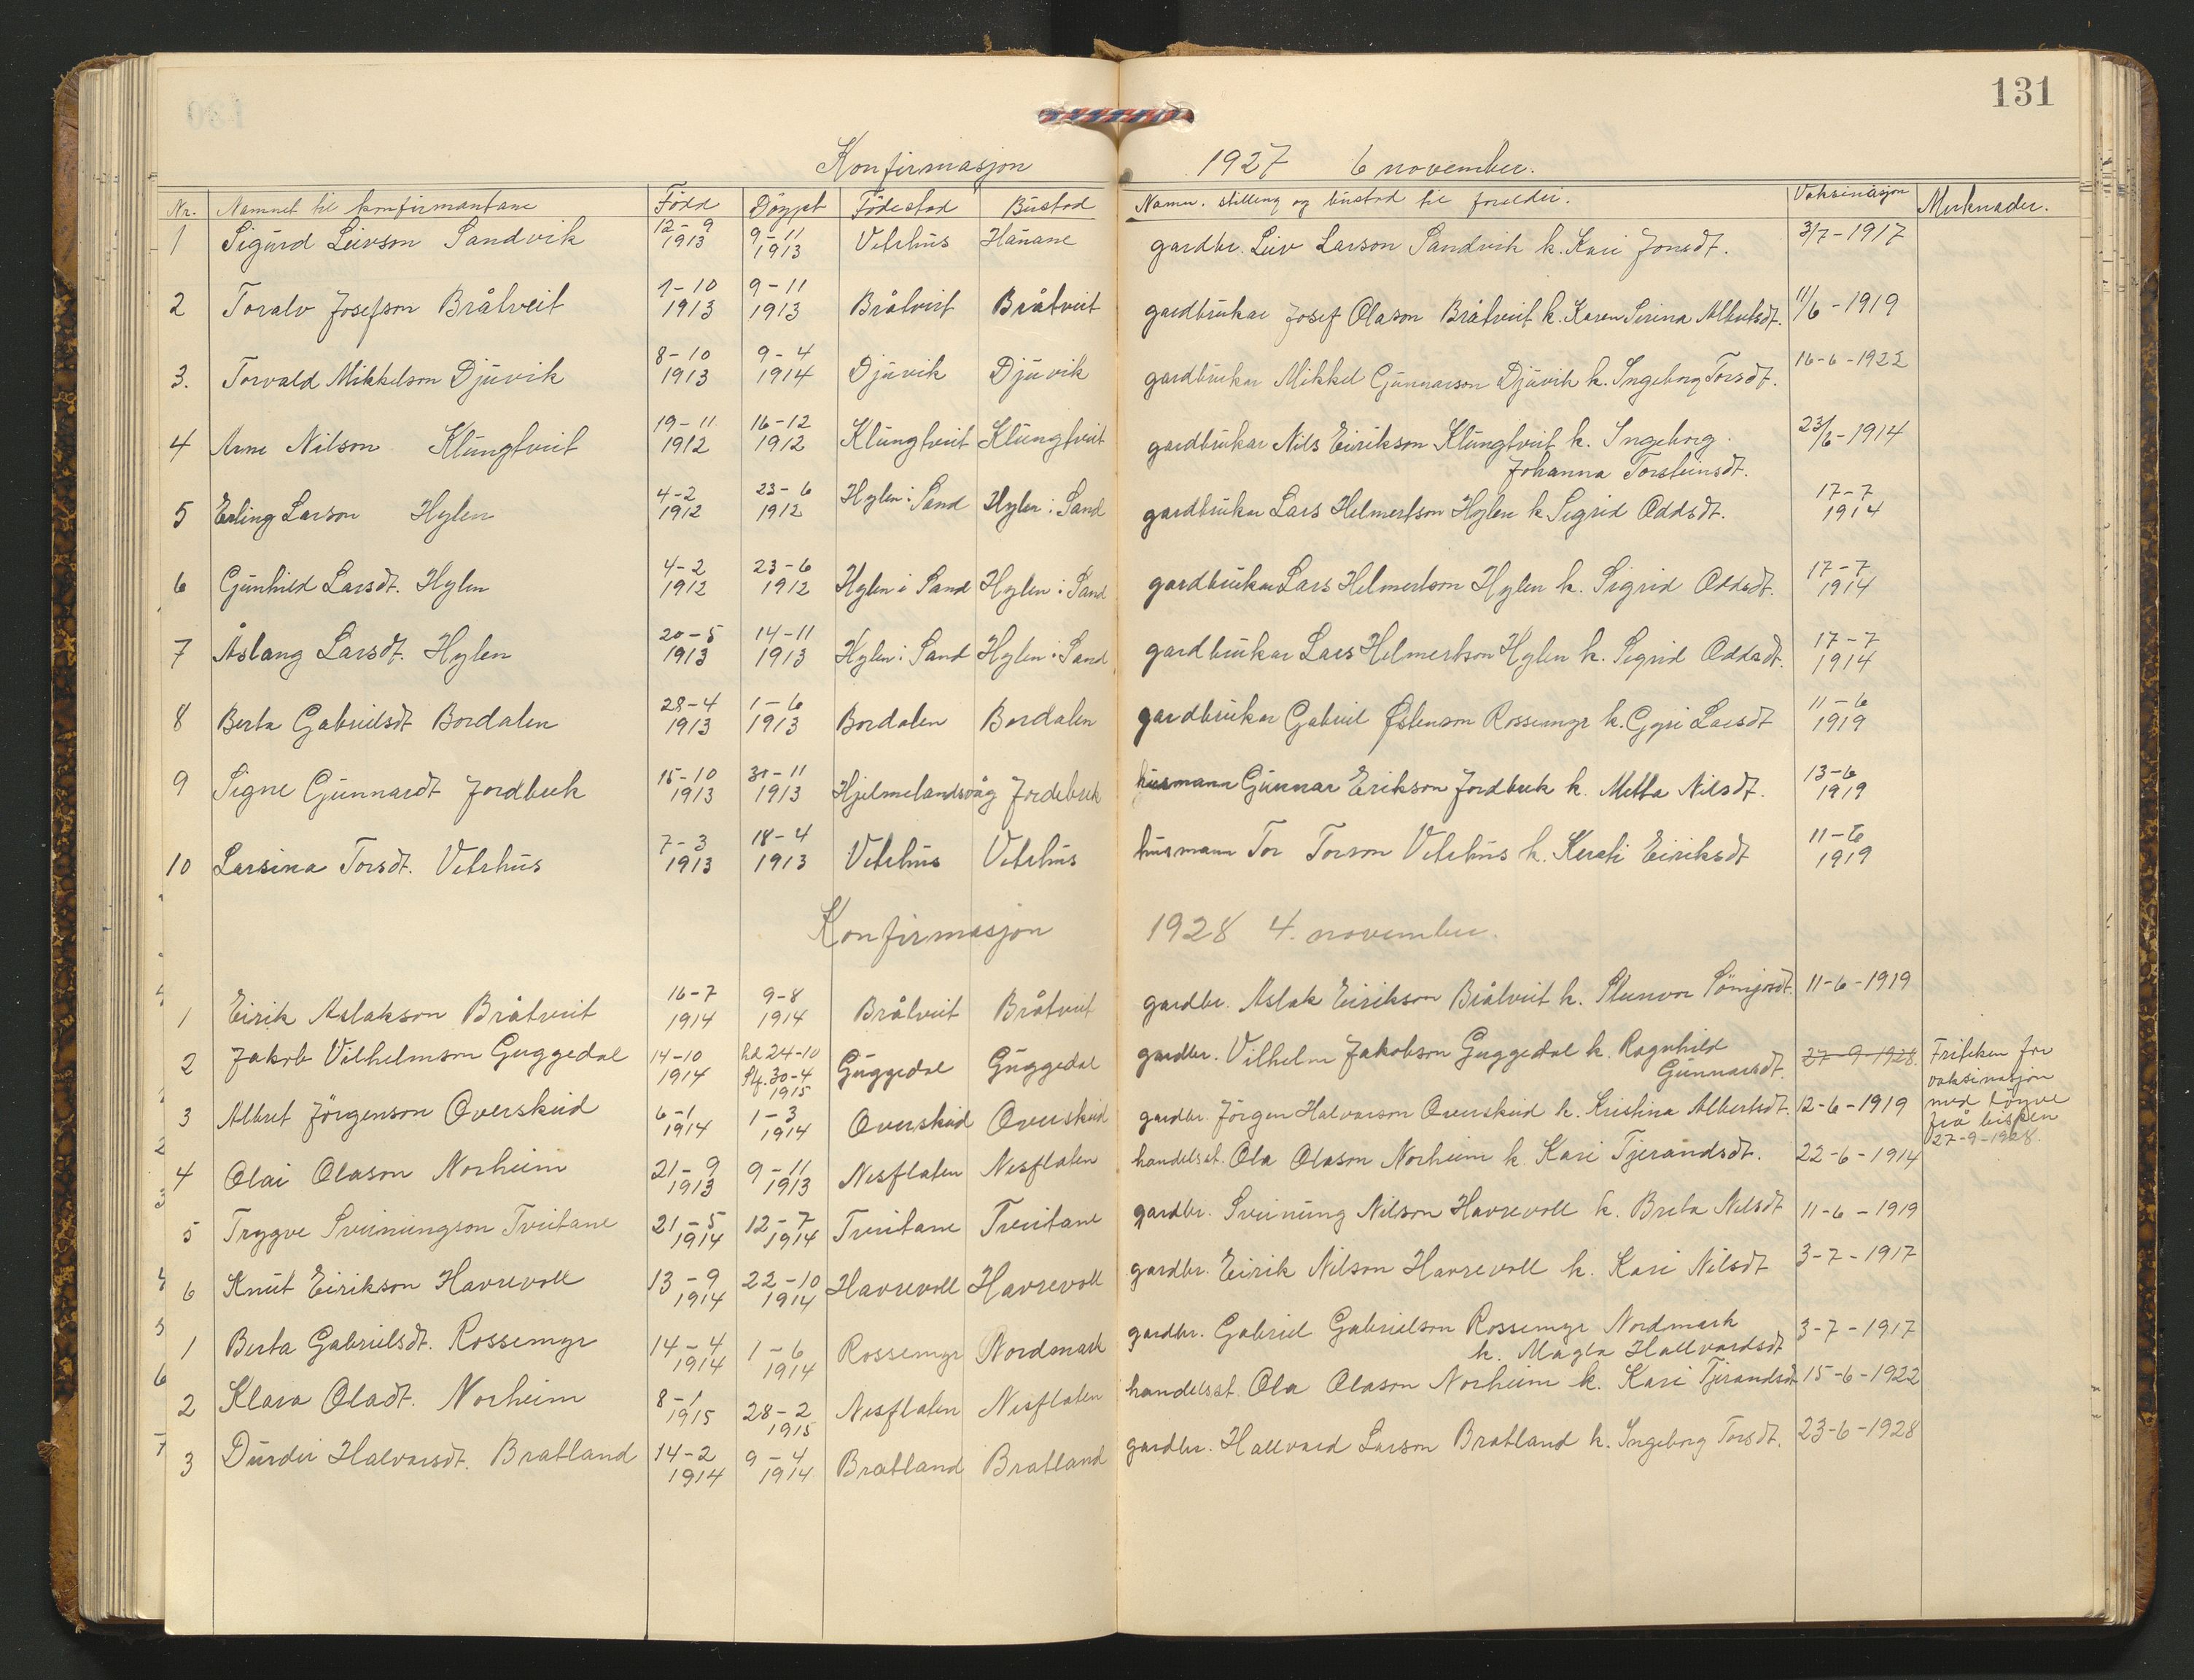 131
Konfirmasjon 1927 6 november.
Nr. Namnet til konfirmantane Född Döypt Födestad Bustad Namn. stilling og bustad til foreldri. Vaksinasjon Merknader.
1 Sigurd Leivson Sandvik 12-9 1913 9-11 1913 Vetrhus Hauane gardbr. Leiv Larson Sandvik k. Kari Jonsdt. 3/7-1917
2 Toralv Josefson Bråtveit 7-10 1913 9-11 1913 Bråtveit Bråtveit gardbrukar Josef Olason Bråtveit k. Karen Serina Albertsdt. 11/6-1919
3. Torvald Mikkelson Djuvik 8-10 1913 9-4 1914 Djuvik Djuvik gardbrukar Mikkel Gunnarson Djuvik k. Ingeborg Torsdt. 16-6-1922
4 Arne Nilson Klungtveit 19-11 1912 16-12 1912 Klungtveit Klungtveit gardbrukar Nils Eirikson Klungtveit k. Ingeborg
Johanna Torsteinsdt. 23/6-1914
5 Erling Larson Hylen 4-2 1912 23-6 1912 Hylen i Sand Hylen i Sand gardbrukar Lars Helmertson Hylen k Sigrid Oddsdt. 17-7 1914
6 Gunhild Larsdt. Hylen 4-2 1912 23-6 1912 Hylen i Sand Hylen i Sand gardbrukar Lars Helmertson Hylen k. Sigrid Oddsdt. 17-7 1914
7 Åslaug Larsdt. Hylen 20-5 1913 14-11 1913 Hylen i Sand Hylen i Sand gardbrukar Lars Helmertson Hylen k. Sigrid Oddsdt. 17-7 1914
8 Berta Gabrielsdt Bordalen 28-4 1913 1-6 1913 Bordalen Bordalen gardbrukar Gabriel Östenson Rossemyr k. Gyri Larsdt 11-6 1919
9 Signe Gunnarsdt Jordbrek 15-10 1913 -11 1913 Hjelmelandsvåg Jordebrek husmann Gunnar Erikson Jordbrek k. Metta Nilsdt. 13-6 1919
10 Larsina Torsdt. Vetrhus 7-3 1913 18-4 1913 Vetrhus Vetrhus husmann Tor Torson Vetrhus k. Kersti Eiriksdt 11-6 1919
Konfirmasjon 1928 4. november.
1 Eirik Aslakson Bråtveit 16-7 1914 9-8 1914 Bråtveit Bråtveit gardbr. Aslak Eirikson Bråtveit k. Steinvor 11-6-1919
2 Jakob Vilhelmson Guggedal 14-10 1914 hd 24-10 Stf. 30-4 1915 Guggedal Guggedal gardbr. Vilhelm Jakobson Guggedal k. Ragnhild
Gunnarsdt. 27-9-1928. Friteken for
vaksinasjon
med löyve
frå bispen
27-9-1928.
3 Albret Jörgenson Overskeid 6-1 1914 1-3 1914 Overskeid Overskeid gardbr. Jörgen Halvarson Overskeid k. Kristina Albertsdt. 12-6-1919
4 Olai Olason Norheim 21-9 1913 9-11 1913 Nesflaten Nesflaten handelsst. Ola Olason Norheim k. Kari Tjerandsdt. 22-6-1914
5 Trygve Sveinungson Tveitane 21-5 1914 12-7 1914 Tveitane Tveitane gardbr. Sveinung Nilson Havrevoll k. Breta Nilsdt 11-6-1919
6 Knut Eirikson Havrevoll 13-9 1914 22-10 1914 Havrevoll Havrevoll gardbr. Eirik Nilson Havrevoll k. Kari Nilsdt 3-7-1917
1 Berta Gabrielsdt. Rossemyr 14-4 1914 1-6 1914 Rossemyr Nordmark gardbr. Gabriel Gabrielson Rossemyr Nordmark
k. Magla Hallvardsdt 3-7-1917
2 Klara Oladt. Norheim 8-1 1915 28-2 1915 Nesflaten Nesflaten handelsst. Ola Olason Norheim k. Kari Tjerandsdt 15-6-1922
3 Durdei Halvarsdt. Bratland 14-2 1914 9-4 1914 Bratland Bratland gardbr. Hallvard Larson Bratland k. Ingeborg Torsdt. 23-6-1928